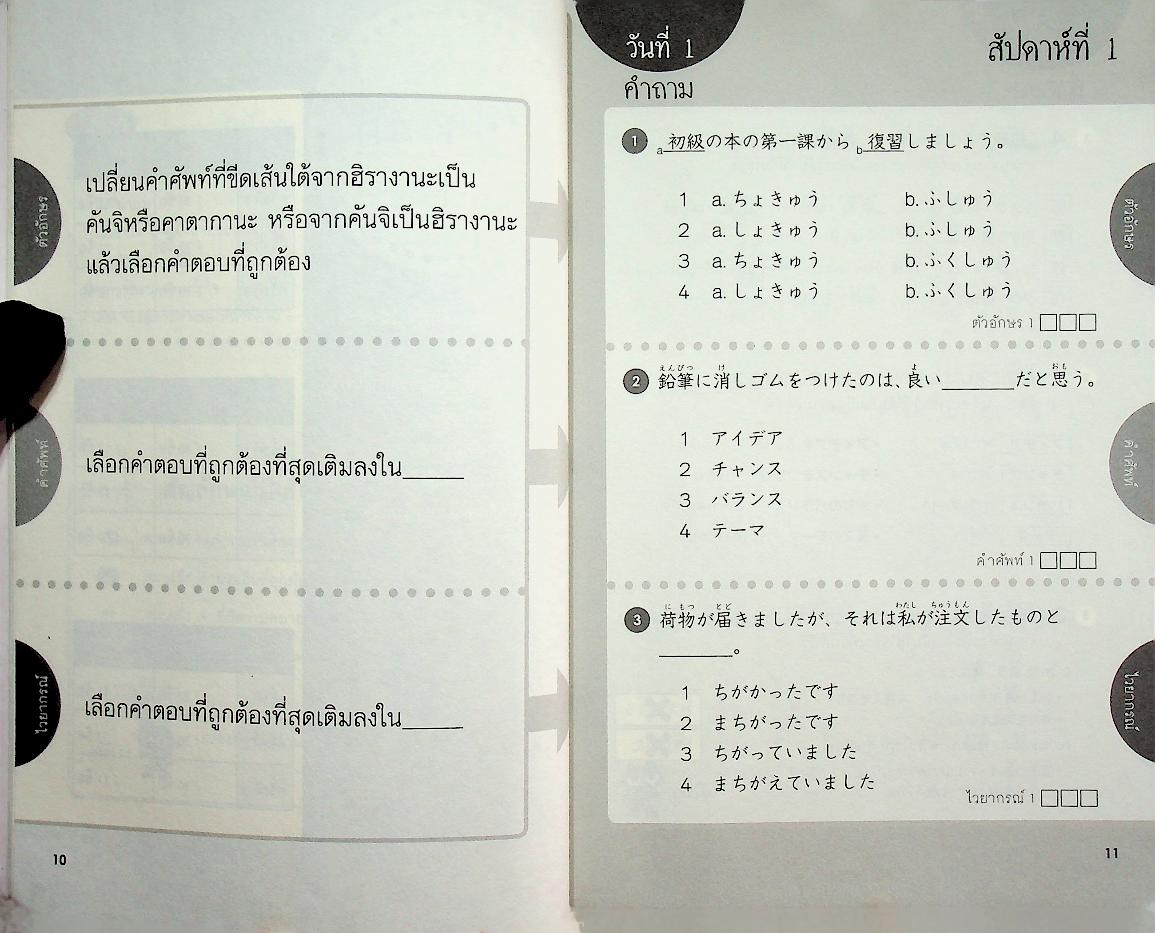 ตัวอักษร
เปลี่ยนคำศัพท์ที่ขีดเส้นใต้จากฮิรางานะเป็น
คันจิหรือคาตากานะ หรือจากคันจิเป็นฮิรางานะ
แล้วเลือกคำตอบที่ถูกต้อง
คำศัพท์
เลือกคำตอบที่ถูกต้องที่สุดเติมลงใน_____
ไวยากรณ์
เลือกคำตอบที่ถูกต้องที่สุดเติมลงใน_____
10
วันที่ 1
สัปดาห์ที่ 1
คำถาม
1 a初級の本の第一課から b復習しましょう。
1 a.ちょきゅう b.ふしゅう
2 a.しょきゅう b.ふしゅう
3 a.ちょきゅう b.ふくしゅう
4 a.しょきゅう b.ふくしゅう
ตัวอักษร 1 □□□
ตัวอักษร
えんぴつ け よ おも
2 鉛筆に消しゴムをつけたのは、良い______だと思う。
1 アイデア
2 チャンス
3 バランス
4 テーマ
คำศัพท์ 1 □□□
คำศัพท์
にもつ とど わたし ちゅうもん
3 荷物が届きましたが、それは私が注文したものと
______。
1 ちがかったです
2 まちがったです
3 ちがっていました
4 まちがえていました
ไวยากรณ์ 1 □□□
ไวยากรณ์
11